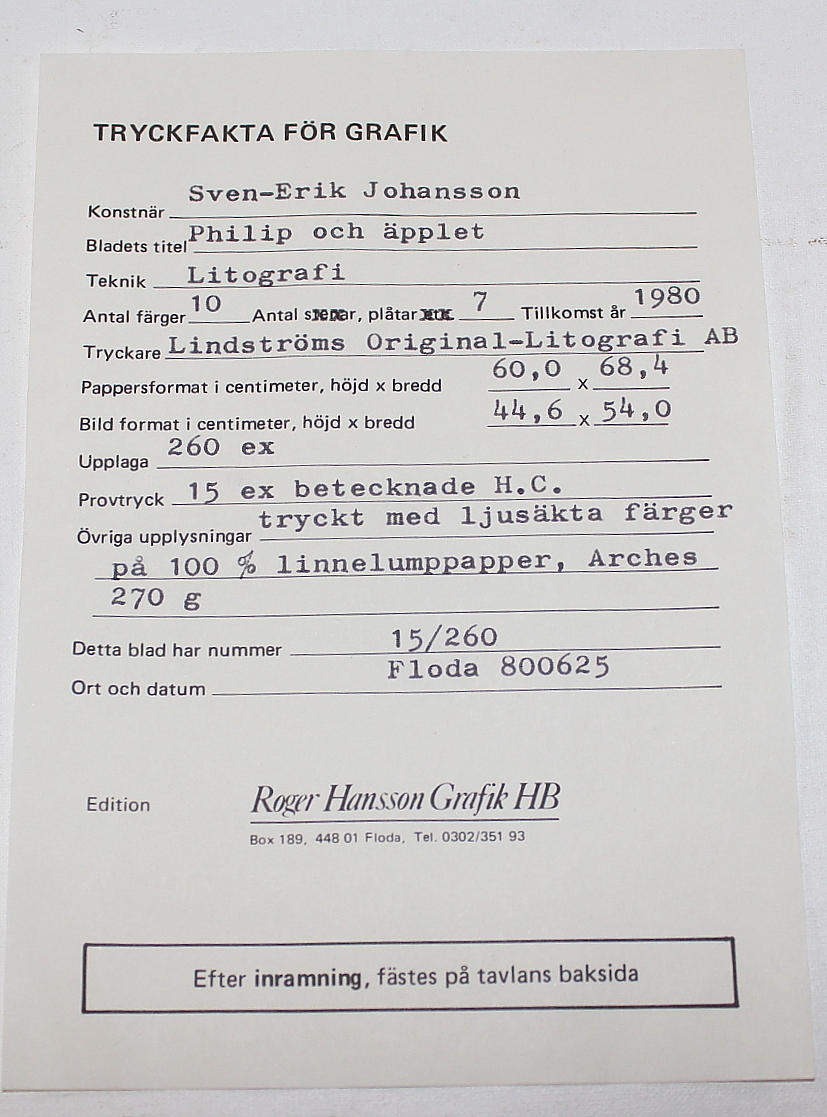 TRYCKFAKTA FÖR GRAFIK
Konstnär Sven-Erik Johansson
Bladets titel Philip och äpplet
Teknik Litografi
Antal färger 10 Antal stenar, plåtar etc. 7 Tillkomst år 1980
Tryckare Lindströms Original-Litografi AB
Pappersformat i centimeter, höjd x bredd 60,0 x 68,4
Bild format i centimeter, höjd x bredd 44,6 x 54,0
Upplaga 260 ex
Provtryck 15 ex betecknade H.C.
Övriga upplysningar tryckt med ljusäkta färger
på 100 % linnelumppapper, Arches
270 g
Detta blad har nummer 15/260
Ort och datum Floda 800625
Edition Roger Hansson Grafik HB
Box 189, 448 01 Floda, Tel. 0302/351 93
Efter inramning, fästes på tavlans baksida